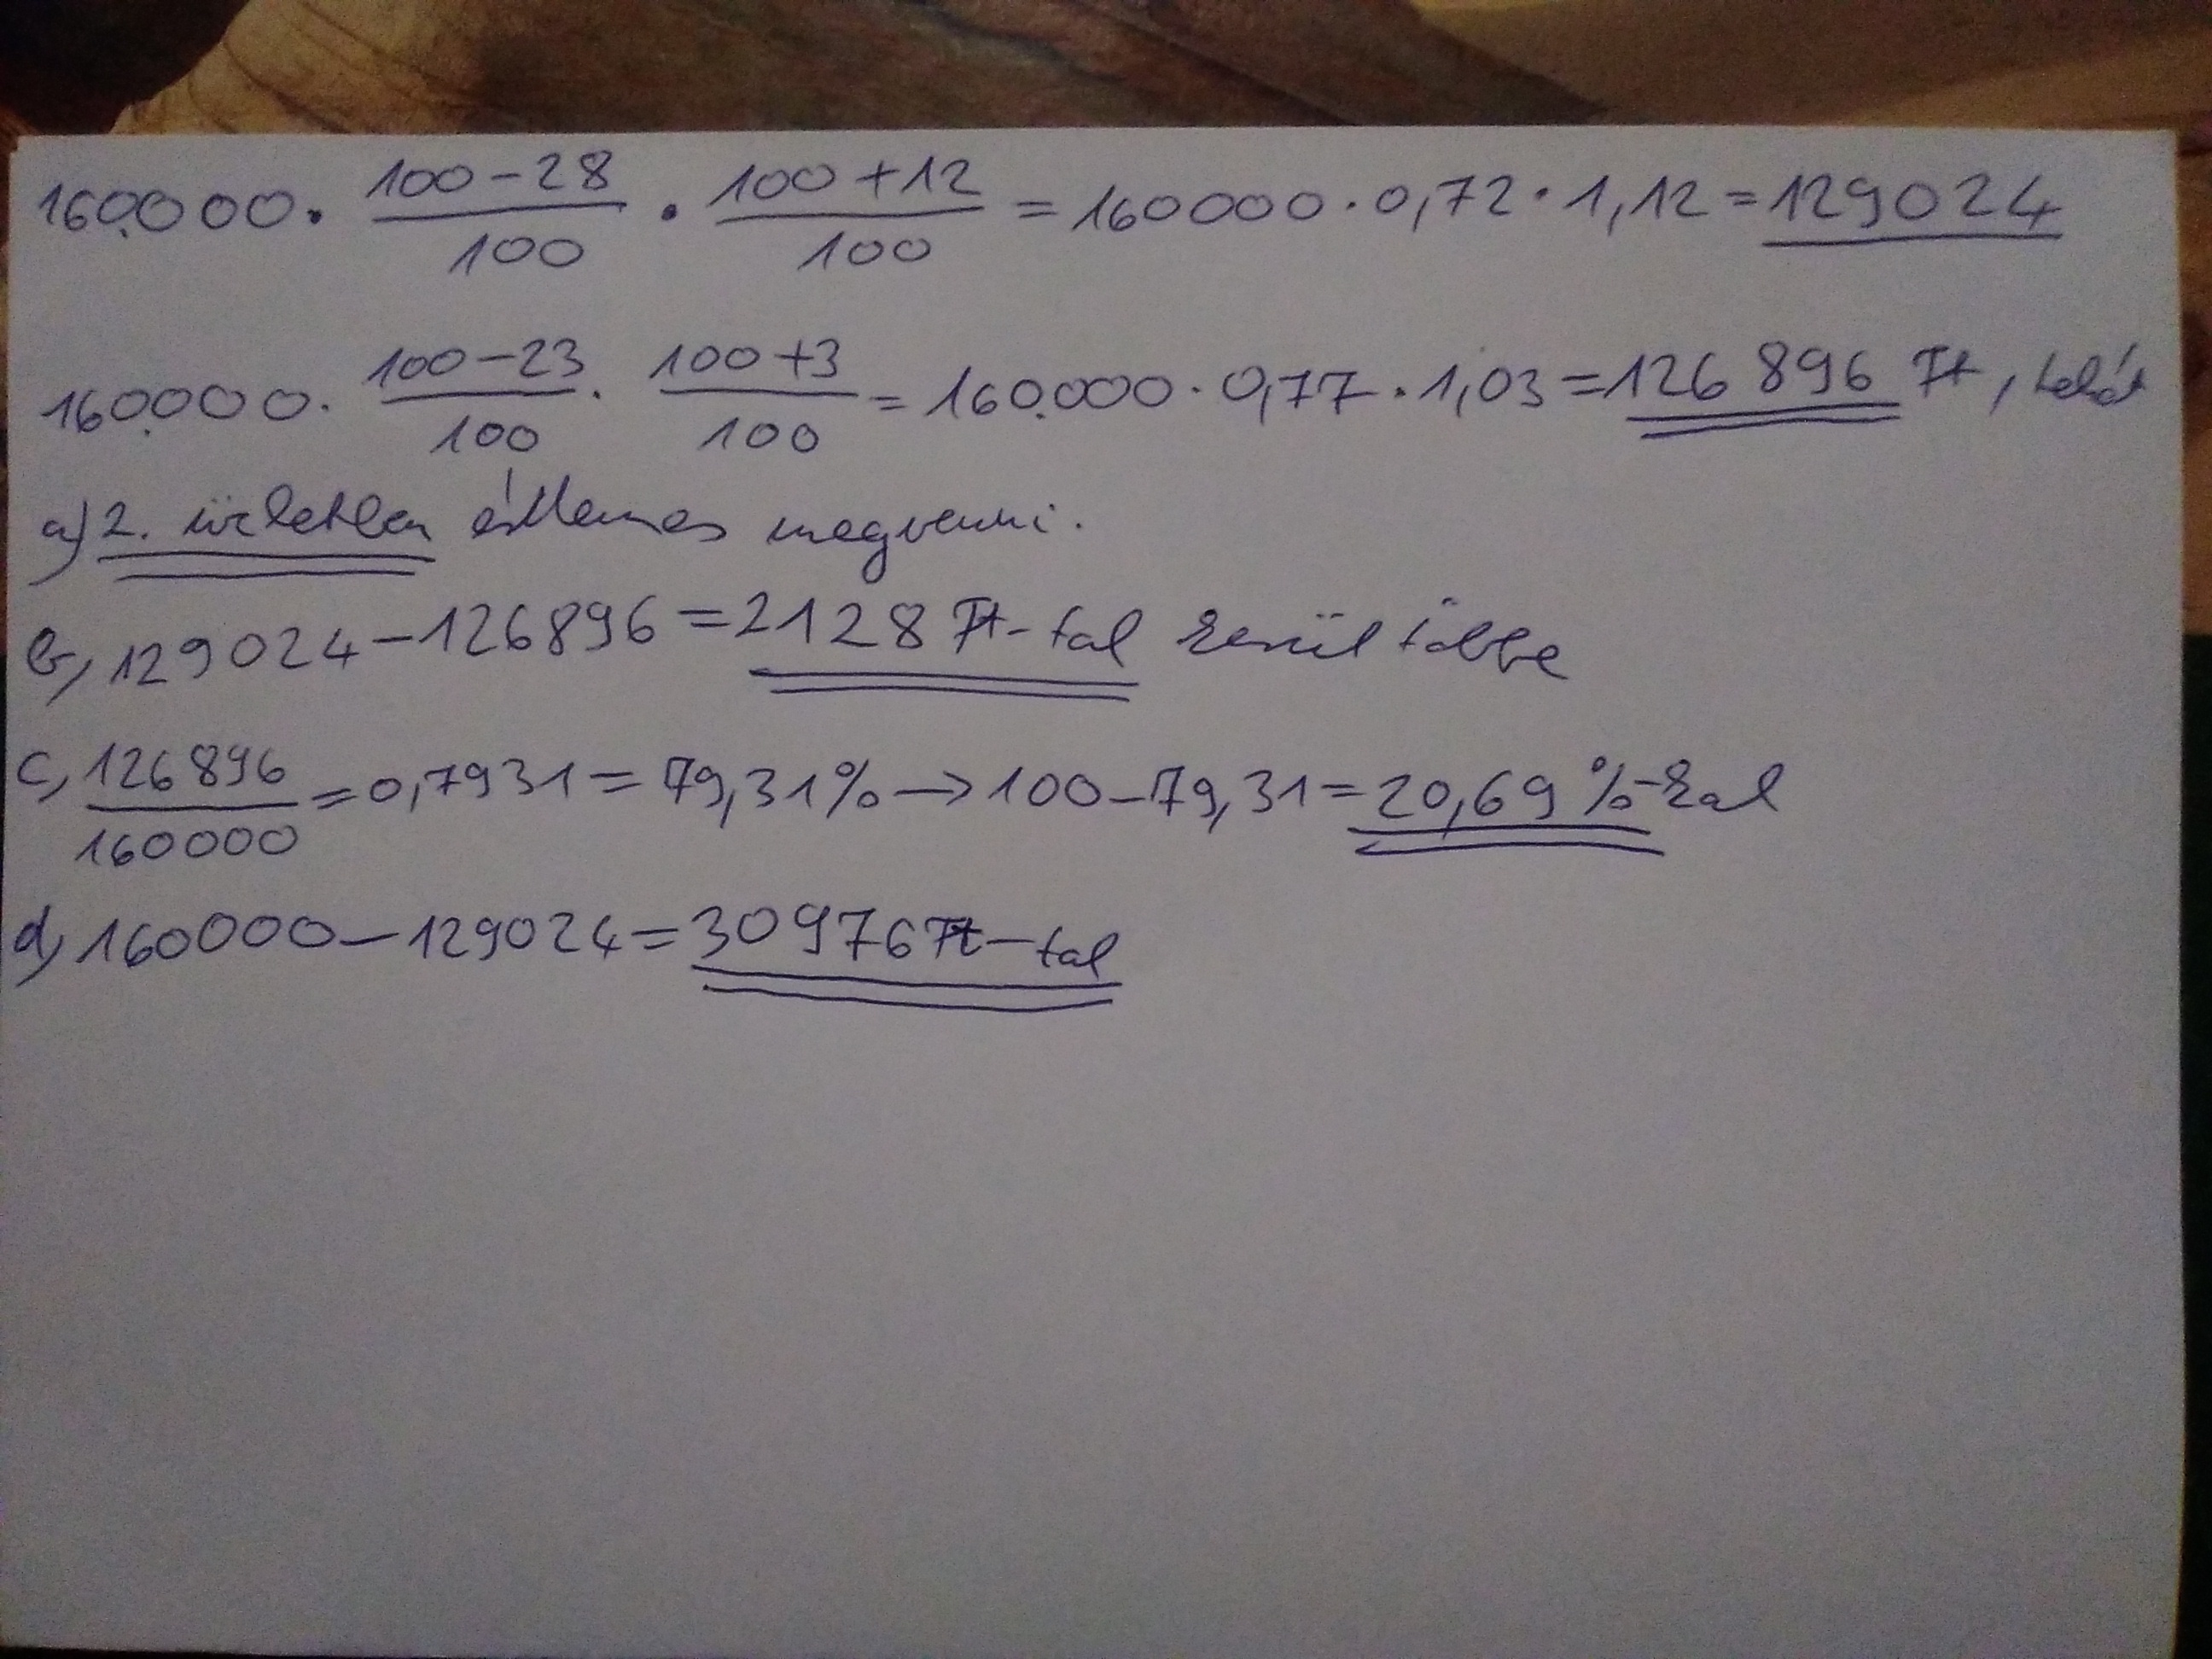 160.000 · (100-28)/100 · (100+12)/100 = 160000 · 0,72 · 1,12 = 129024
160.000 · (100-23)/100 · (100+3)/100 = 160.000 · 0,77 · 1,03 = 126 896 Ft, tehát
a) 2. üzletben érdemes megvenni.
b, 129024 - 126896 = 2128 Ft-tal kerül többe
c, 126896/160000 = 0,7931 = 79,31% → 100 - 79,31 = 20,69 %-kal
d, 160000 - 129024 = 30976 Ft-tal